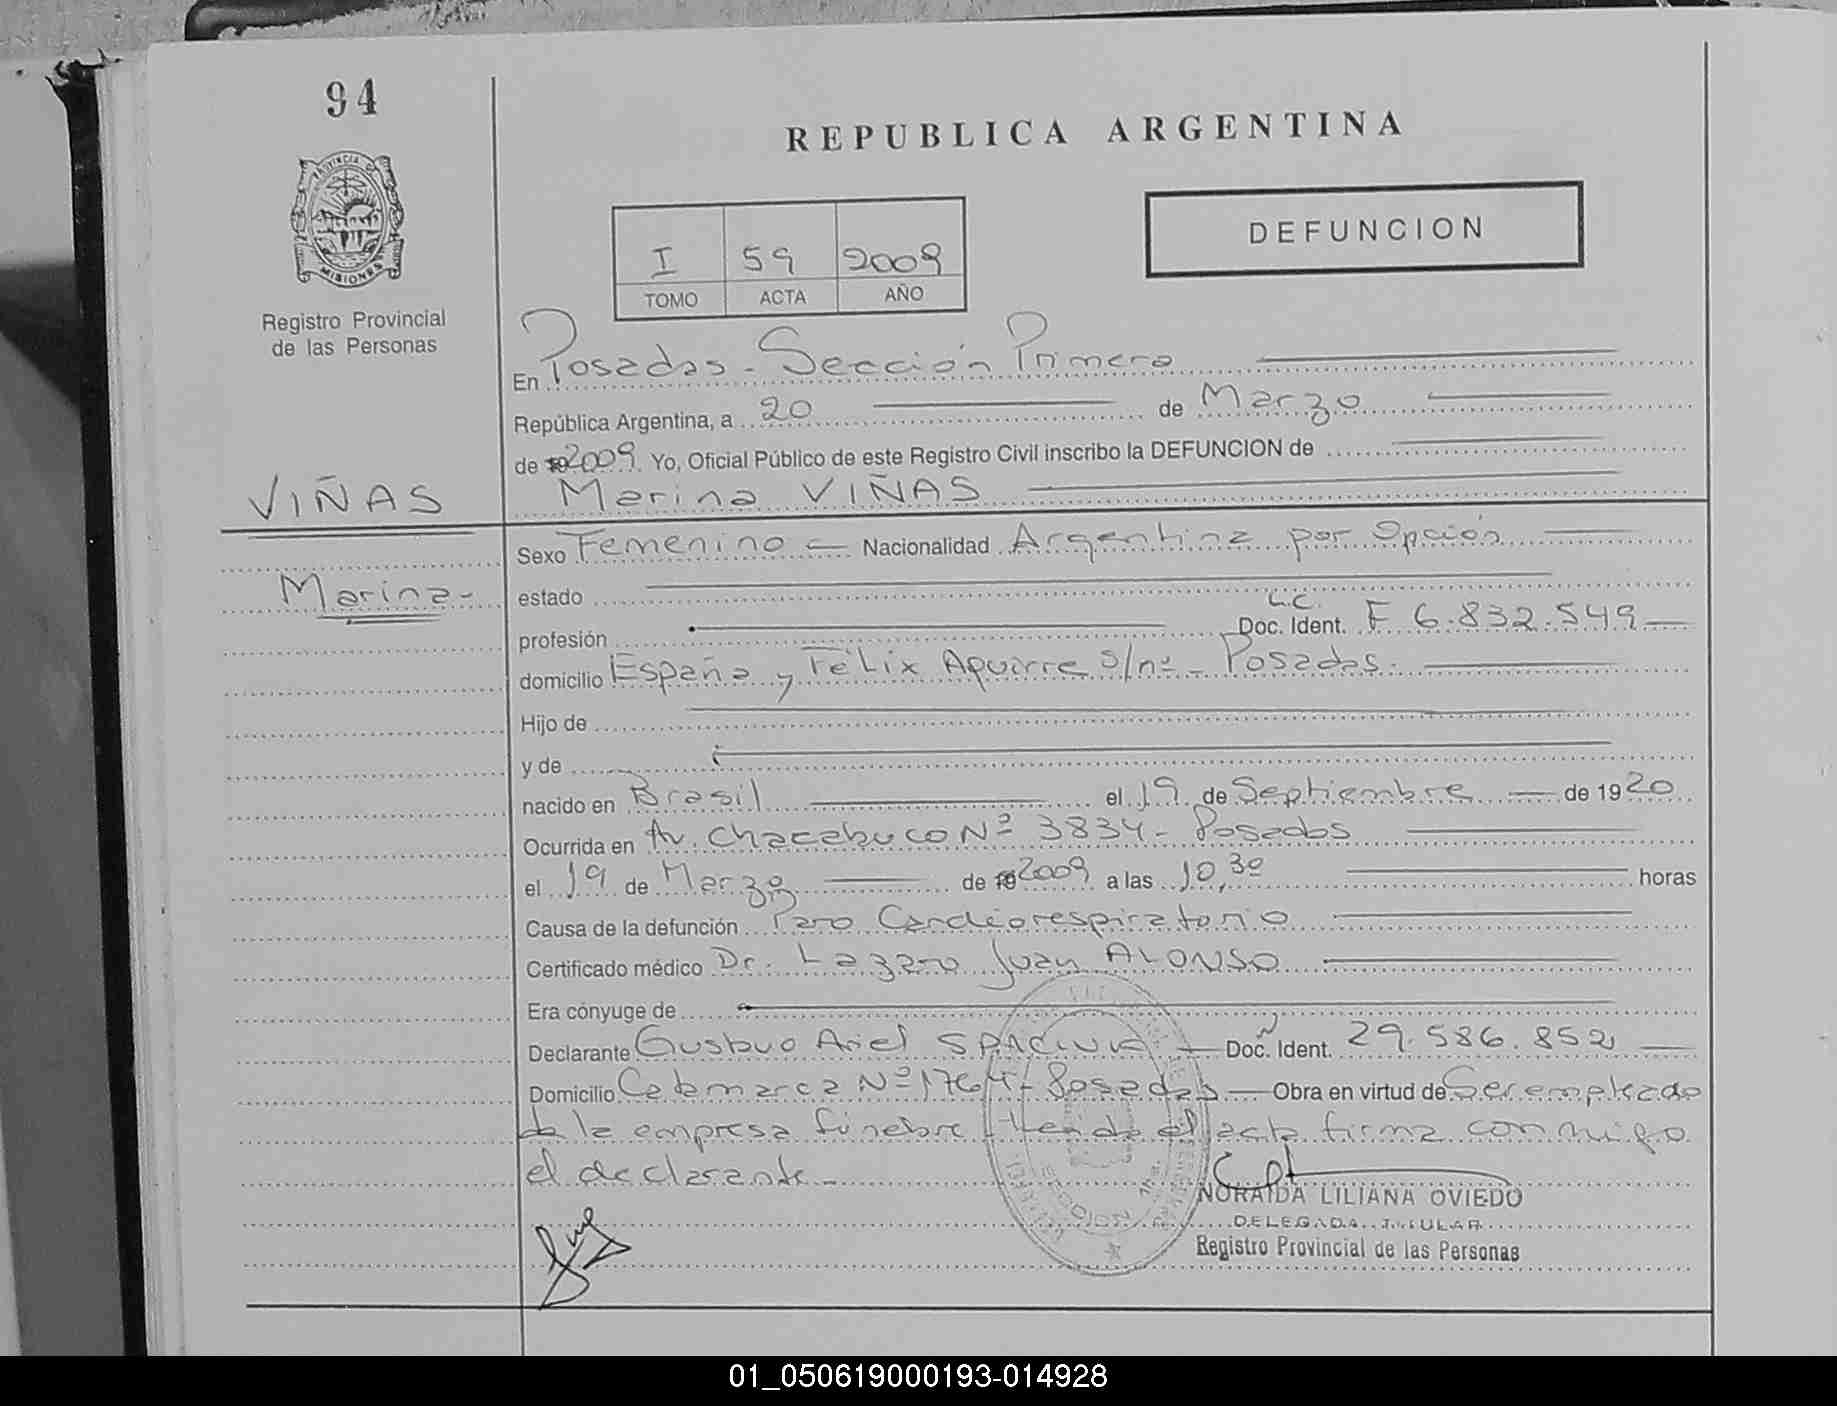 94
REPUBLICA ARGENTINA
PROVINCIA DE
MISIONES
Registro Provincial
de las Personas
I 59 2009
TOMO ACTA AÑO
DEFUNCION
En Posadas - Sección Primera
República Argentina, a 20 de Marzo
de 19 2009. Yo, Oficial Público de este Registro Civil inscribo la DEFUNCION de
VIÑAS
Marina VIÑAS
Marina-
Sexo Femenino - Nacionalidad Argentina por Opción
estado
L.C.
profesión Doc. Ident. F 6.832.549
domicilio España y Félix Aguirre s/nº - Posadas.
Hijo de
y de
nacido en Brasil el 19 de Septiembre de 1920
Ocurrida en Av. Chacabuco Nº 3834 - Posadas
el 19 de Marzo de 19 2009 a las 10,30 horas
Causa de la defunción Paro Cardiorespiratorio
Certificado médico Dr. Lazaro Juan ALONSO
Era cónyuge de
Declarante Gustavo Ariel Doc. Ident. 29.586.852
Domicilio Catamarca Nº 1764 - Posadas - Obra en virtud de Ser empleado
de la empresa fúnebre leída el acta firma conmigo
el declarante-
NORAIDA LILIANA OVIEDO
DELEGADA TITULAR
Registro Provincial de las Personas
SECCION 1ra.
01_050619000193-014928